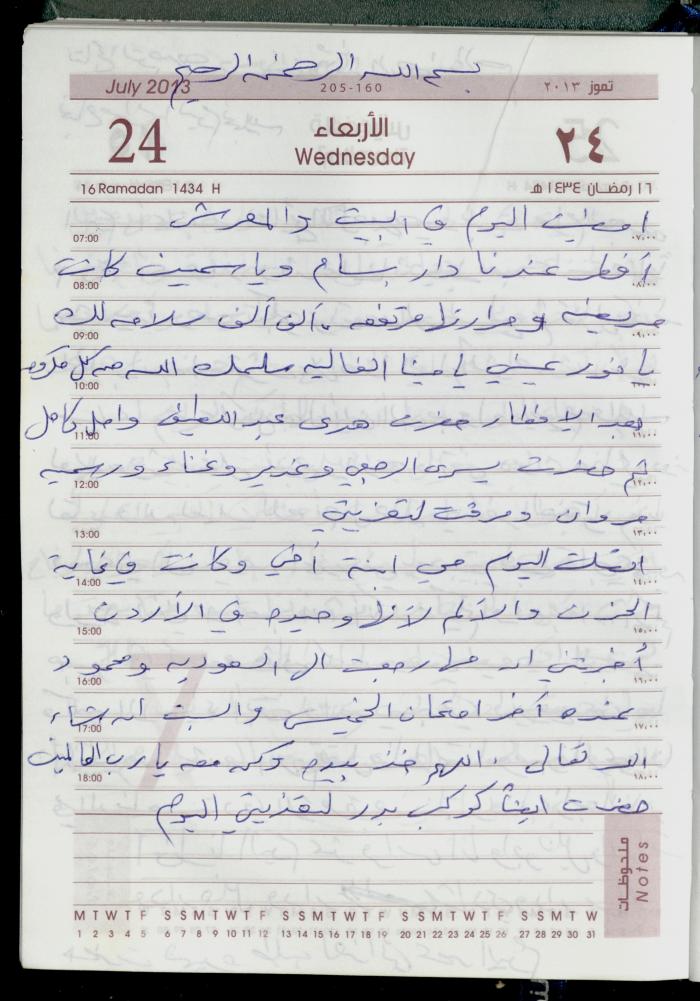 بسم الله الرحمن الرحيم
July 2013 205-160 تموز ٢٠١٣
24 الأربعاء ٢٤
Wednesday
16 Ramadan 1434 H ١٦ رمضان ١٤٣٤ هـ
امضيت اليوم في البيت والمعرش
07:00 ٠٧:٠٠
أفطر عندنا دار بسام وياسمين كانت
08:00 ٠٨:٠٠
مريضة وحرارتها مرتفعه . ألف ألف سلامه لك
09:00 ٠٩:٠٠
يا نور عيني يا مينا الغاليه سلمك الله من كل مكروه
10:00
بعد الافطار حضرت هدى عبد اللطيف وامل كامل
11:00 ١١:٠٠
ثم حضرت يسرى الرجبي وغدير وغناء ورسميه
12:00 ١٢:٠٠
مروان وميرفت لتعزيتي
13:00 ١٣:٠٠
اتصلت اليوم مي ابنة أخي وكانت في غاية
14:00 ١٤:٠٠
الحزن والألم لأنها وحيده في الأردن
15:00 ١٥:٠٠
أخبرتني ان مها رجعت الى السعوديه ومحمود
16:00 ١٦:٠٠
عنده آخر امتحان الخميس والسبت ان شاء
17:00 ١٧:٠٠
الله تعالى . اللهم خذ بيدهم وكن معه يا رب العالمين
18:00 ١٨:٠٠
حضرت ايضاً كوكب بدر لتعزيتي اليوم
ملحوظات
Notes
M T W T F S S M T W T F S S M T W T F S S M T W T F S S M T W
1 2 3 4 5 6 7 8 9 10 11 12 13 14 15 16 17 18 19 20 21 22 23 24 25 26 27 28 29 30 31